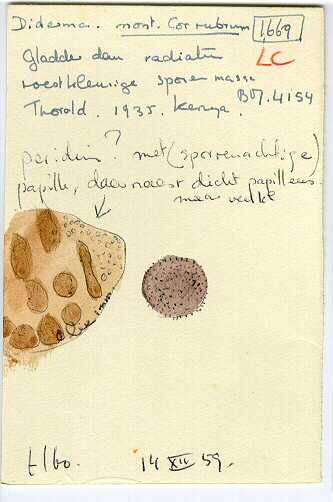 Diderma. nost. Cor rubrum 1669
Gladder dan radiatum LC
roestkleurige sporenmassa
BM. 4154
Thorold. 1935. Kenya.
peridium? met (sporenachtige)
papillen, daarnaast dicht papilleus
maar
Elbo. 14 XII 59.